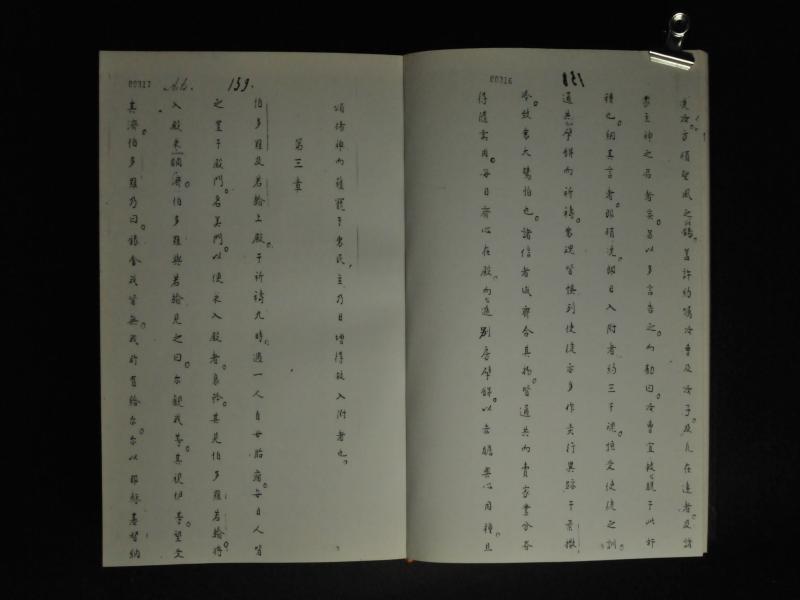 00316
151
洗冷方領聖風之錫蓋許約嘱尔曹及尔子及凡在遠者及諸
吾主神之召者矣另以多言告之而勸曰尔曹宜救脱于此奸
種也納其言者即領洗即日入附者約三千魂恒受使徒之訓
通共擘餅而祈禱衆魂皆慎到使徒亦多作奇行異跡于柔撒
冷致衆大驚怕也諸信者咸聯合其物皆通共而賣家業分各
得隨需用每日齊心在殿而進别房擘餅以吉膽與心用糧且
00317
Ac.
159.
頌揚神而獲寵于衆民主乃日增得救入附者也
第三章
伯多羅及若翰上殿于祈禱九時適一人自母胎痼每日人皆
之置于殿門名美門以便求入殿者哀矜其見伯多羅若翰將
入殿求賙濟伯多羅與若翰見之曰尔觀我等其視伊等望受
其濟伯多羅乃曰銀金我皆無我所有給尔尔以耶穌基督納